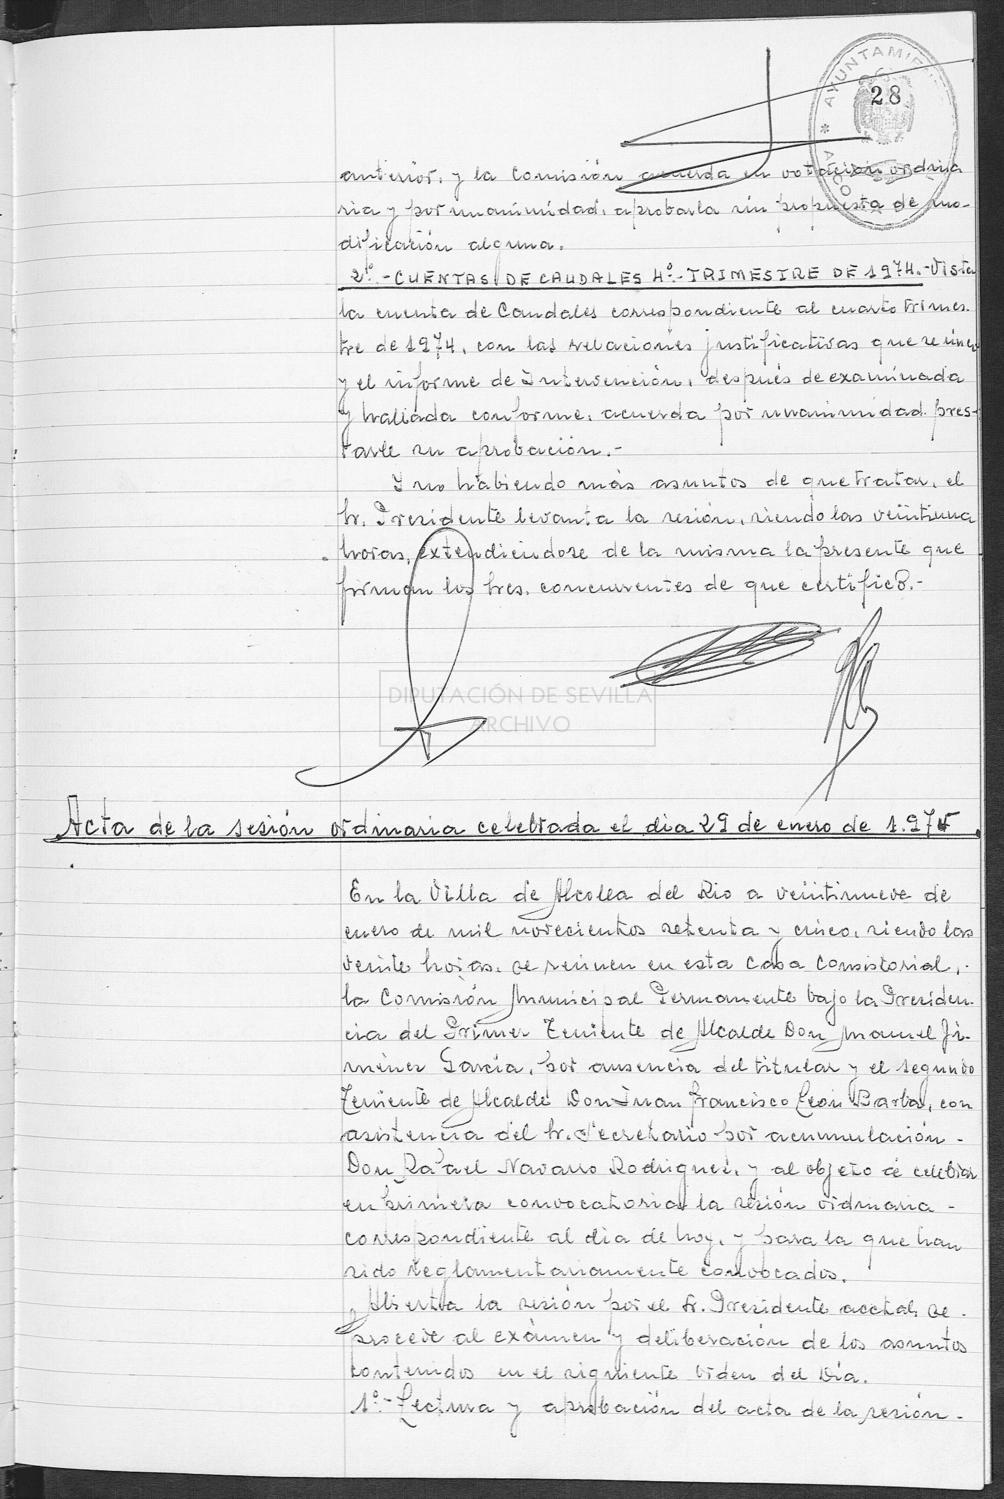 AYUNTAMIE
28
anterior, y la Comisión acuerda en votación ordina
ria y por unanimidad, aprobarla sin propuesta de mo-
dificación alguna.
2º.-CUENTAS DE CAUDALES 4º.-TRIMESTRE DE 1974.-Vista
la cuenta de Caudales correspondiente al cuarto trimes-
tre de 1974, con las relaciones justificativas que se unen
y el informe de Intervención, después de examinada
y hallada conforme, acuerda por unanimidad pres-
tarle su aprobación.-
Y no habiendo más asuntos de que tratar, el
Sr. Presidente levanta la sesión, siendo las veintiuna
horas, extendiéndose de la misma la presente que
firman los Sres. concurrentes de que certifico.-
DIPUTACIÓN DE SEVILLA
ARCHIVO
Acta de la sesión ordinaria celebrada el día 29 de enero de 1.975.
En la Villa de Alcolea del Rio a veintinueve de
enero de mil novecientos setenta y cinco, siendo las
veinte horas, se reunen en esta Casa Consistorial,-
la Comisión Municipal Permanente bajo la Presiden-
cia del Primer Teniente de Alcalde Don Manuel Ji-
ménez García, por ausencia del titular y el segundo
Teniente de Alcalde Don Juan Francisco León Barba, con
asistencia del Sr. Secretario por acumulación -
Don Rafael Navarro Rodriguez, y al objeto de celebrar
en primera convocatoria la sesión ordinaria -
correspondiente al día de hoy, y para la que han
sido reglamentariamente convocados.
Abierta la sesión por el Sr. Presidente acctal, se -
procede al exámen y deliberación de los asuntos
contenidos en el siguiente Orden del Día.
1º.-Lectura y aprobación del acta de la sesión -